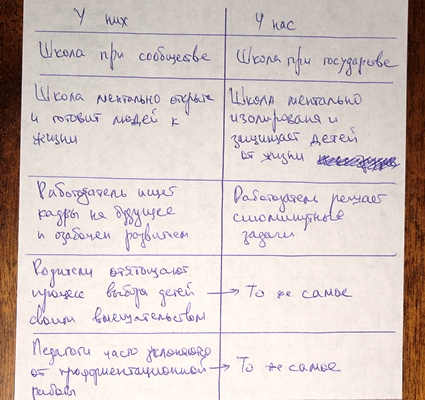 У них
У нас
Школа при сообществе
Школа при государстве
Школа ментально открыта
и готовит людей к
жизни
Школа ментально
изолирована и
защищает детей
от жизни
Работодатель ищет
кадры на будущее
и озабочен развитием
Работодатель решает
сиюминутные
задачи
Родители отягощают
процесс выбора детей
своим вмешательством
→ То же самое
Педагоги часто уклоняются
от профориентационной
работы
→ То же самое